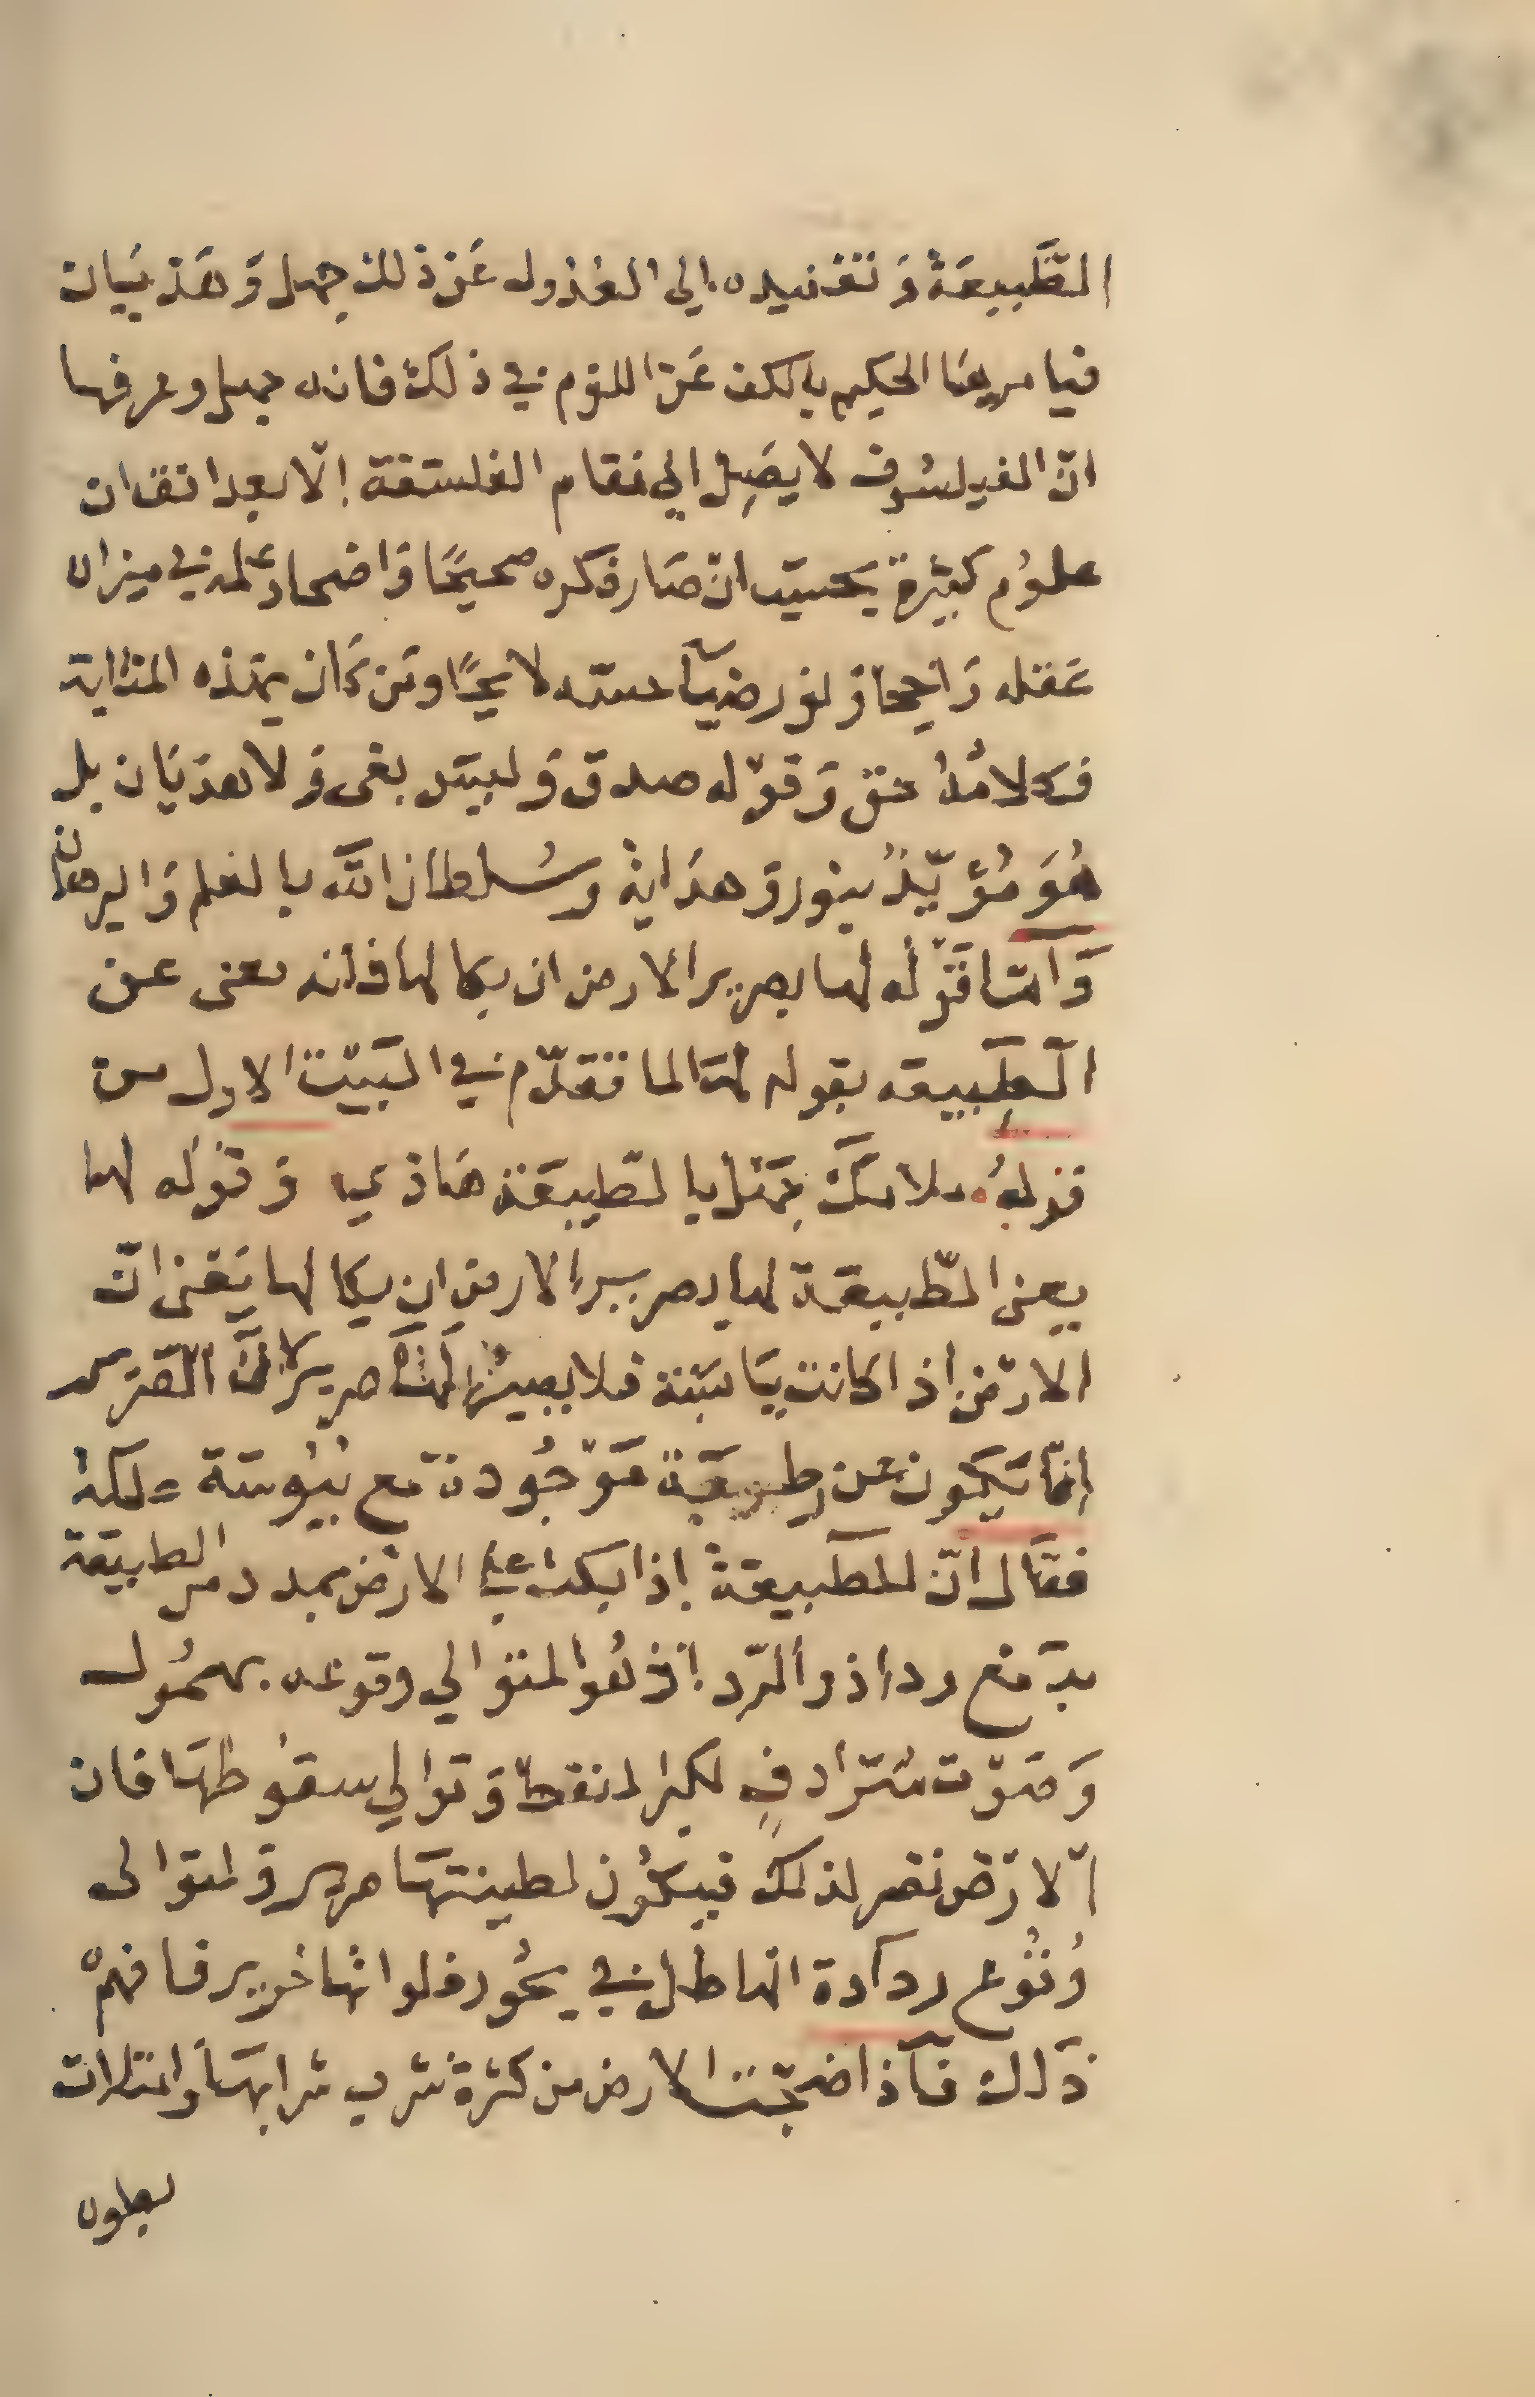 الطَّبيعَة وَتفنيده الى العذول عَن ذلك جهل وَهَذيَان
فيامرهَا الحكيم بالكف عَن اللوم في ذلك فانه جهل وعرفها
انّ الفيلسُوف لا يصَل الي مقام الفلسَفة إلّا بعد اتقان
علوُم كثيرة بحَيث انّ صَار فكره صحيحًا وَاضحا وَعلمه في ميزان
عَقله رَاجحا وَنور ضيآ حسّه لايحًا ومَن كَان بهَذه المثابة
فكلامُهُ حق وَقوْله صدق وَليسَ بغى وَلا هذيَان بل
هُوَ مُؤيّد بنور وَهدَاية وسُلطان الله بالعلم وَالبرهان
وَآمّا قَوْله لها بصرير الارض ان بكا لها فَانه يعنى عن
الطَبيعه بقوله لهَا لما تقدّم في البَيْت الاول من
قولهُ ملامك جَهل بالطّبيعَة هَاذي وَقوله لها
يعني الطّبيعَة لها بصرير الارض ان بكا لها يَعني انّ
الارْض اذا كانت يَابسَة فلا يصير لهَا صرير لانّ الصّرير
إنمّا يَكون عن رطوبَة مَوْجُودة مَع يبُوسَة ملكة
فقَال انّ الطَبيعَة إذا بكت على الارْض بمدد من الطبيعَة
مدمَع رداذ والرّد اذ هُوا المتوالي وقوعه بهمُول
وَصَوْت مُترادفٍ لكبر النقط وَتوالي سقوُطهَا فان
الارْض تصر لذلك فيكُون لطينتهَا صرير وَلتوالى
وُقُوع ردادة الهاطل في بحُور فلواتها خرير فافهمْ
ذَلك فآذا ضجّت الارض من كثرة شرب شرابهَا وامتلات
بطون